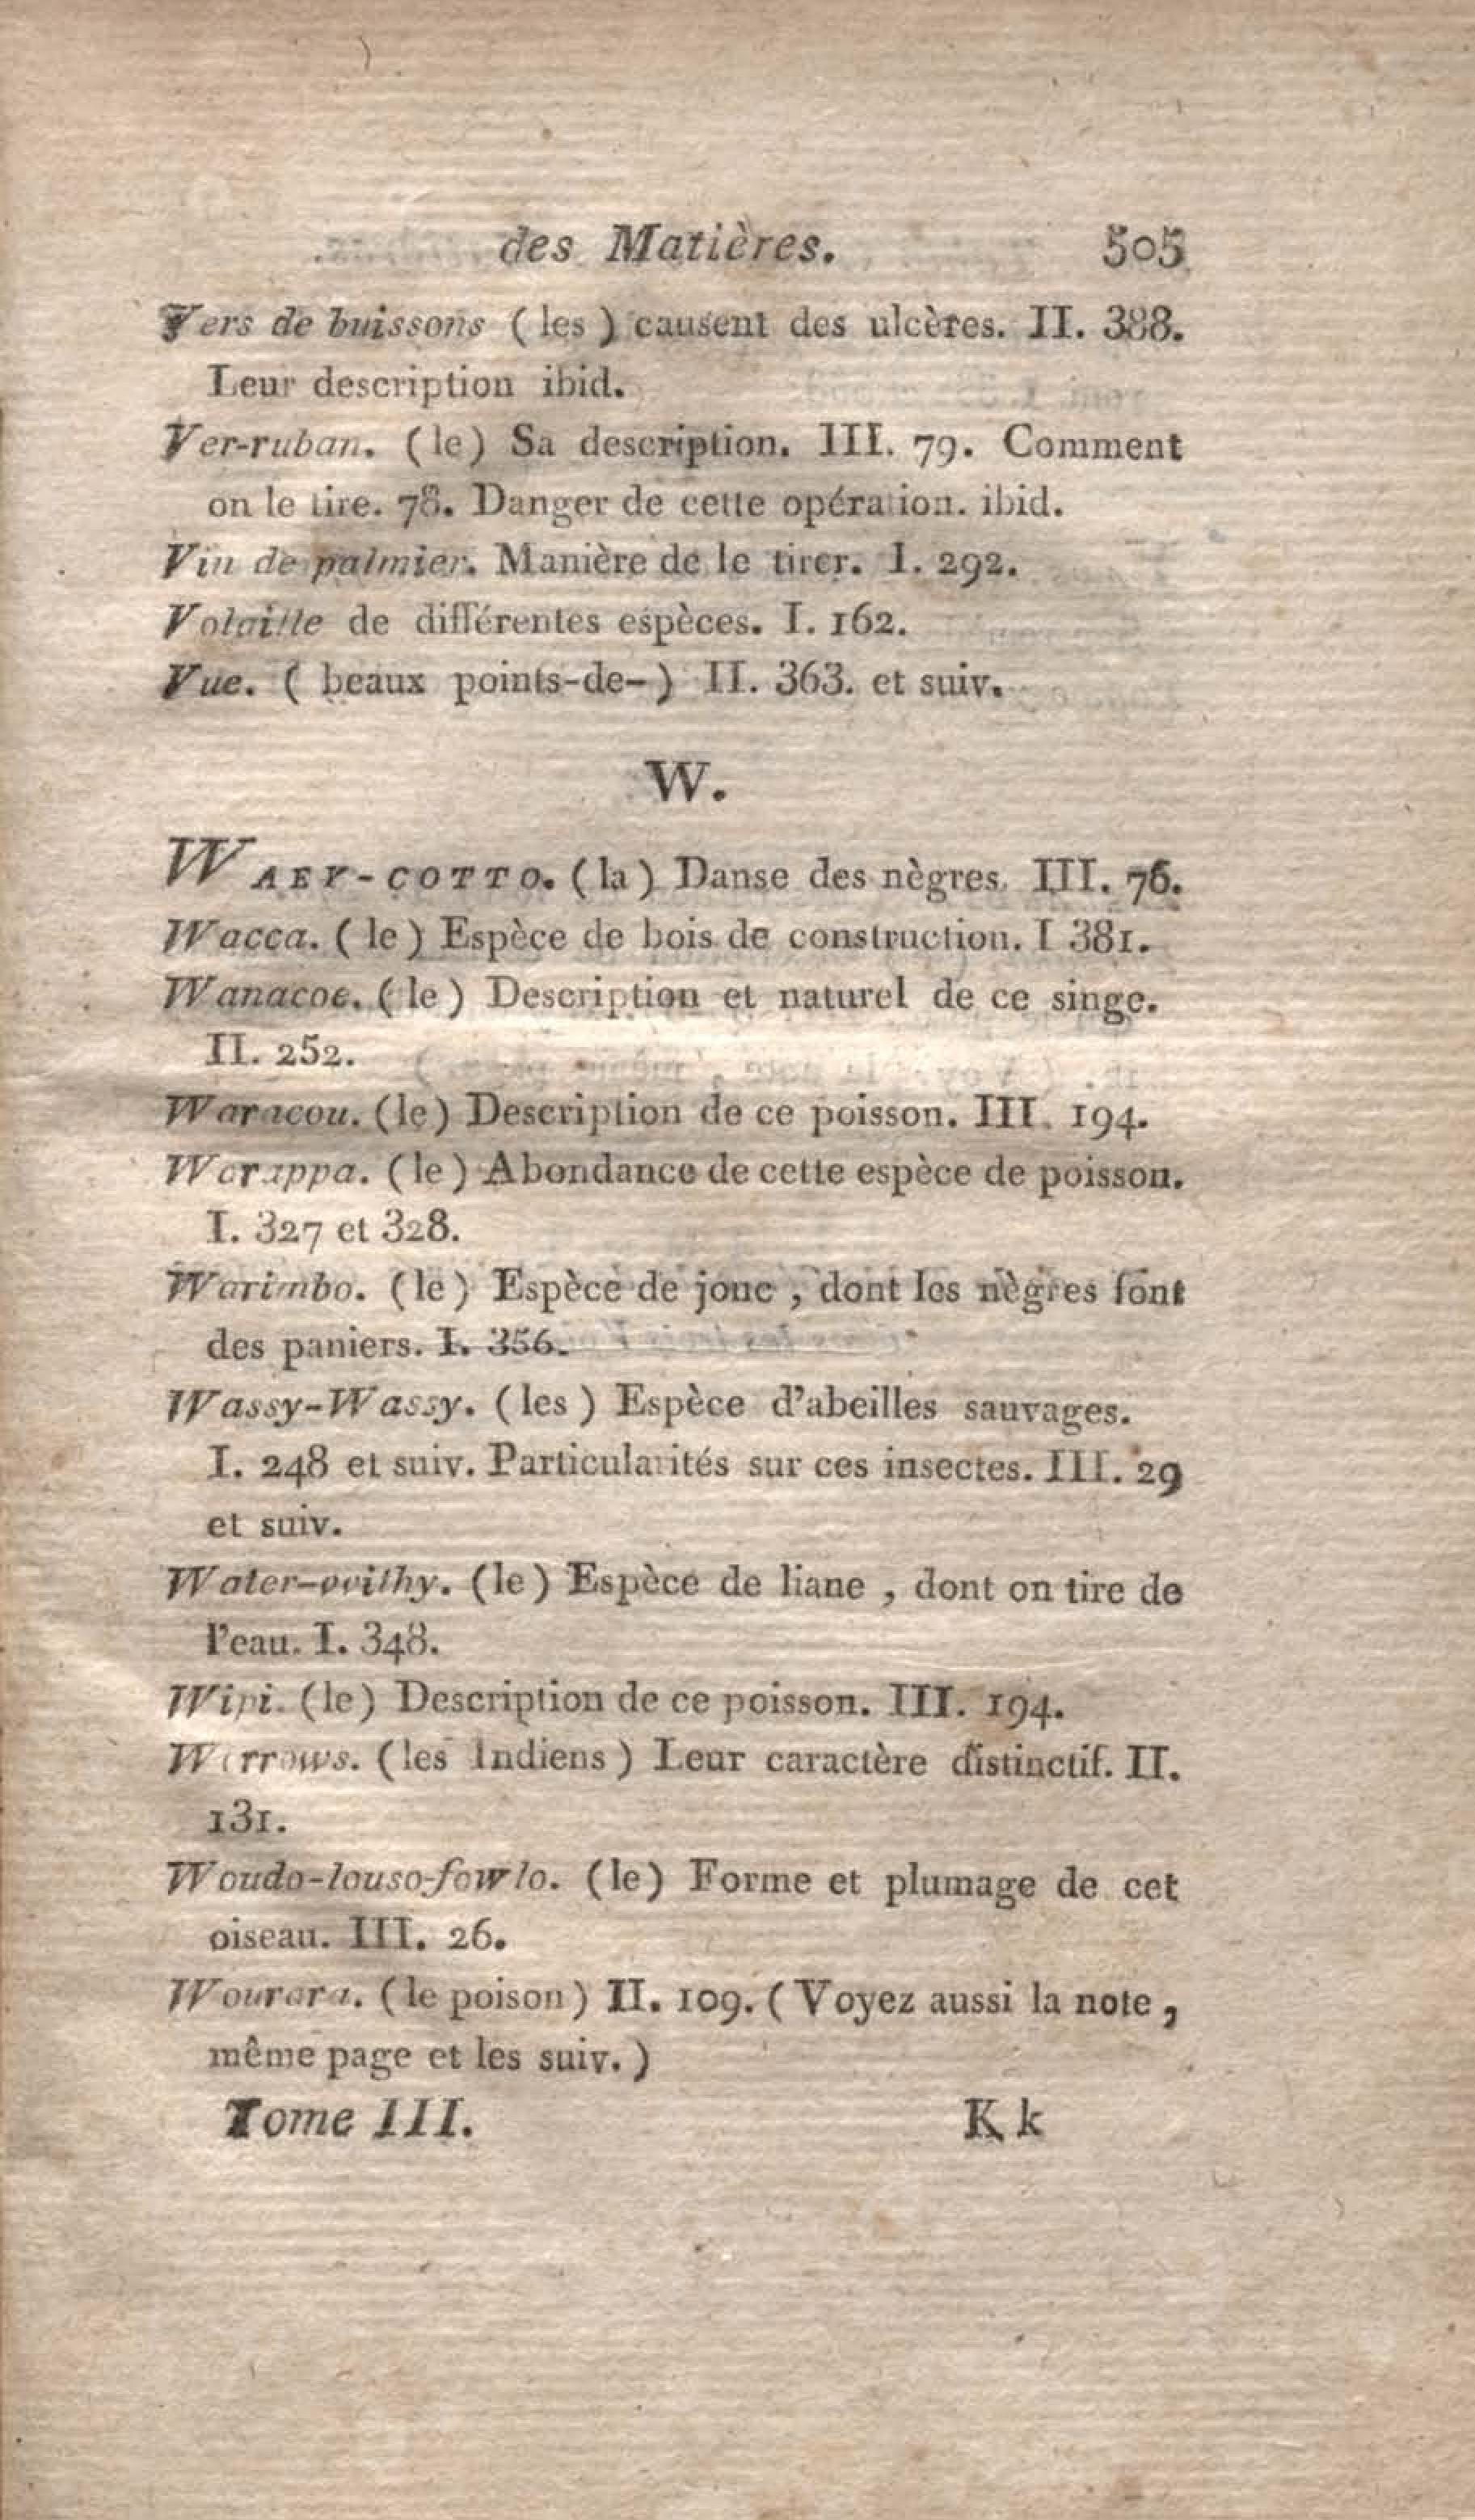 des Matières. 505
Vers de buissons ( les ) causent des ulcères. II. 388.
Leur description ibid.
Ver-ruban. ( le ) Sa description. III. 79. Comment
on le tire. 78. Danger de cette opération. ibid.
Vin de palmier. Manière de le tirer. I. 292.
Volaille de différentes espèces. I. 162.
Vue. ( beaux points-de- ) II. 363. et suiv.
W.
WAEY-COTTO. ( la ) Danse des nègres. III. 76.
Wacca. ( le ) Espèce de bois de construction. I 381.
Wanacoe. ( le ) Description et naturel de ce singe.
II. 252.
Waracou. (le) Description de ce poisson. III. 194.
Warappa. ( le ) Abondance de cette espèce de poisson.
I. 327 et 328.
Warimbo. ( le ) Espèce de jonc , dont les nègres font
des paniers. I. 356.
Wassy-Wassy. ( les ) Espèce d'abeilles sauvages.
I. 248 et suiv. Particularités sur ces insectes. III. 29
et suiv.
Water-withy. (le ) Espèce de liane , dont on tire de
l'eau. I. 348.
Wipi. (le) Description de ce poisson. III. 194.
Wirrows. ( les Indiens ) Leur caractère distinctif. II.
131.
Woudo-louso-fowlo. (le) Forme et plumage de cet
oiseau. III. 26.
Wourara. ( le poison ) II. 109. ( Voyez aussi la note ,
même page et les suiv. )
Tome III. K k